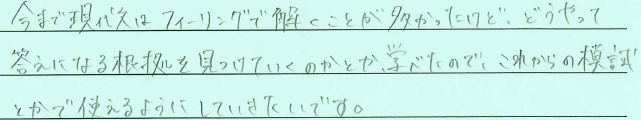 今まで現代文はフィーリングで解くことが多かったけど、どうやって
答えになる根拠を見つけていくのかとか学べたので、これからの模試
とかで使えるようにしていきたいです。